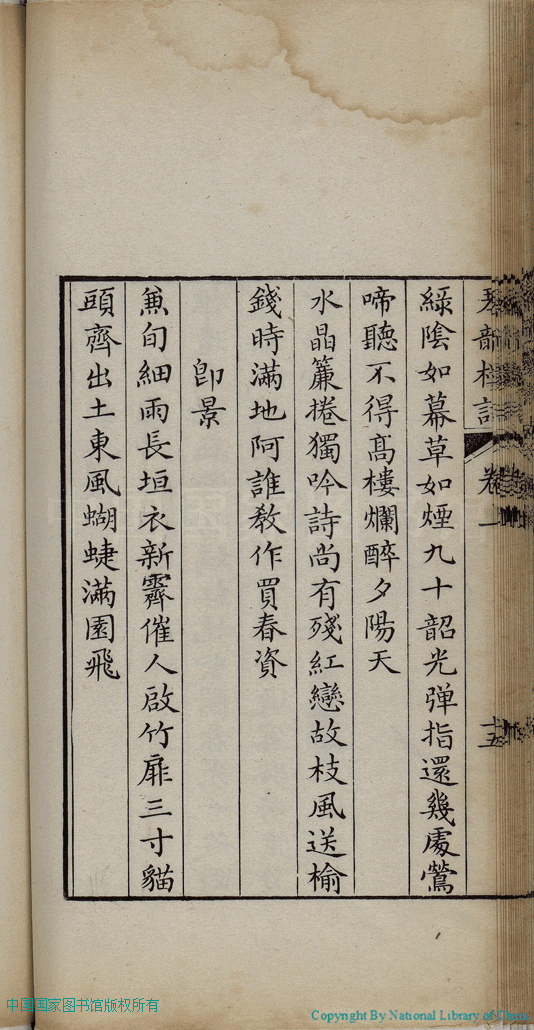 綠陰如幕草如煙九十韶光彈指還幾處鶯
啼聽不得高樓爛醉夕陽天
水晶簾捲獨吟詩尚有殘紅戀故枝風送榆
錢時滿地阿誰教作買春資
卽景
兼旬細雨長垣衣新霽催人啟竹扉三寸貓
頭齊出土東風蝴蜨滿園飛
卷一
十五
中国国家图书馆版权所有
Copyright By National Library of China